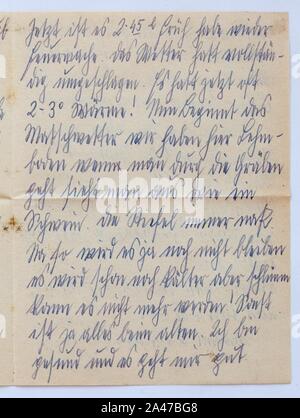 Jetzt ist es 2.45 h früh habe wieder
Feuerwache das Wetter hatt vollstän-
dig umgeschlagen. Es hatt jetzt oft
2-3° Wärme! Nun beginnt das
Matschwetter wir haben hier Lehm-
boden wenn man durch die Gräben
geht sieht man aus wie ein
Schwein. die Stiefel immer naß.
Na so wird es ja noch nicht bleiben
es wird schon noch kälter aber schlimm
kann es nicht mehr werden! Sonst
ist ja alles beim alten. Ich bin
gesund und es geht mir gut
alamy
Image ID: 2A47BG8
www.alamy.com